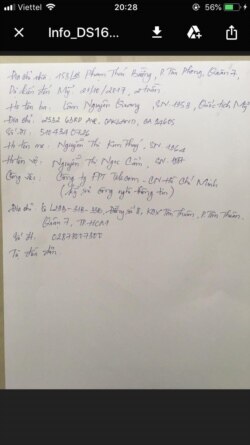 20:28
56%
Info_DS16...
Địa chỉ nhà: 153/25 Phạm Thái Bường, P. Tân Phong, Quận 7,
Đi đến Mỹ /2017, 2 tuần
Họ tên ba: Lâm Nguyên Quang, SN 1959, Quốc tịch Mỹ
Địa chỉ: 2532 63RD AVE, OAKLAND, CA 94605
Số ĐT: 510 434 0726
Họ tên mẹ: Nguyễn Thị Kim Thuý, SN 1964
Họ tên vợ: Nguyễn Thị Ngọc Cẩm, SN
Công ty: Công ty FPT Telecom - CN Hồ Chí Minh
(Kỹ sư công nghệ thông tin)
Địa chỉ: Lô 29B-31B-33B, Đường số 8, KCX Tân Thuận, P. Tân Thuận,
Quận 7, TP. HCM
Số ĐT: 02873007300